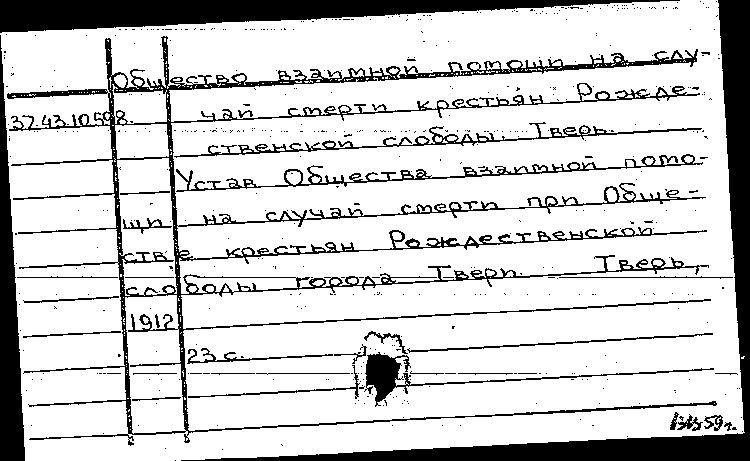 Общество взаимной помощи на слу-
37.43.10598.
чай смерти крестьян Рожде-
ственской слободы. Тверь.
Устав Общества взаимной помо-
щи на случай смерти при Обще-
стве крестьян Рождественской
слободы города Твери. Тверь,
1912
23 с.